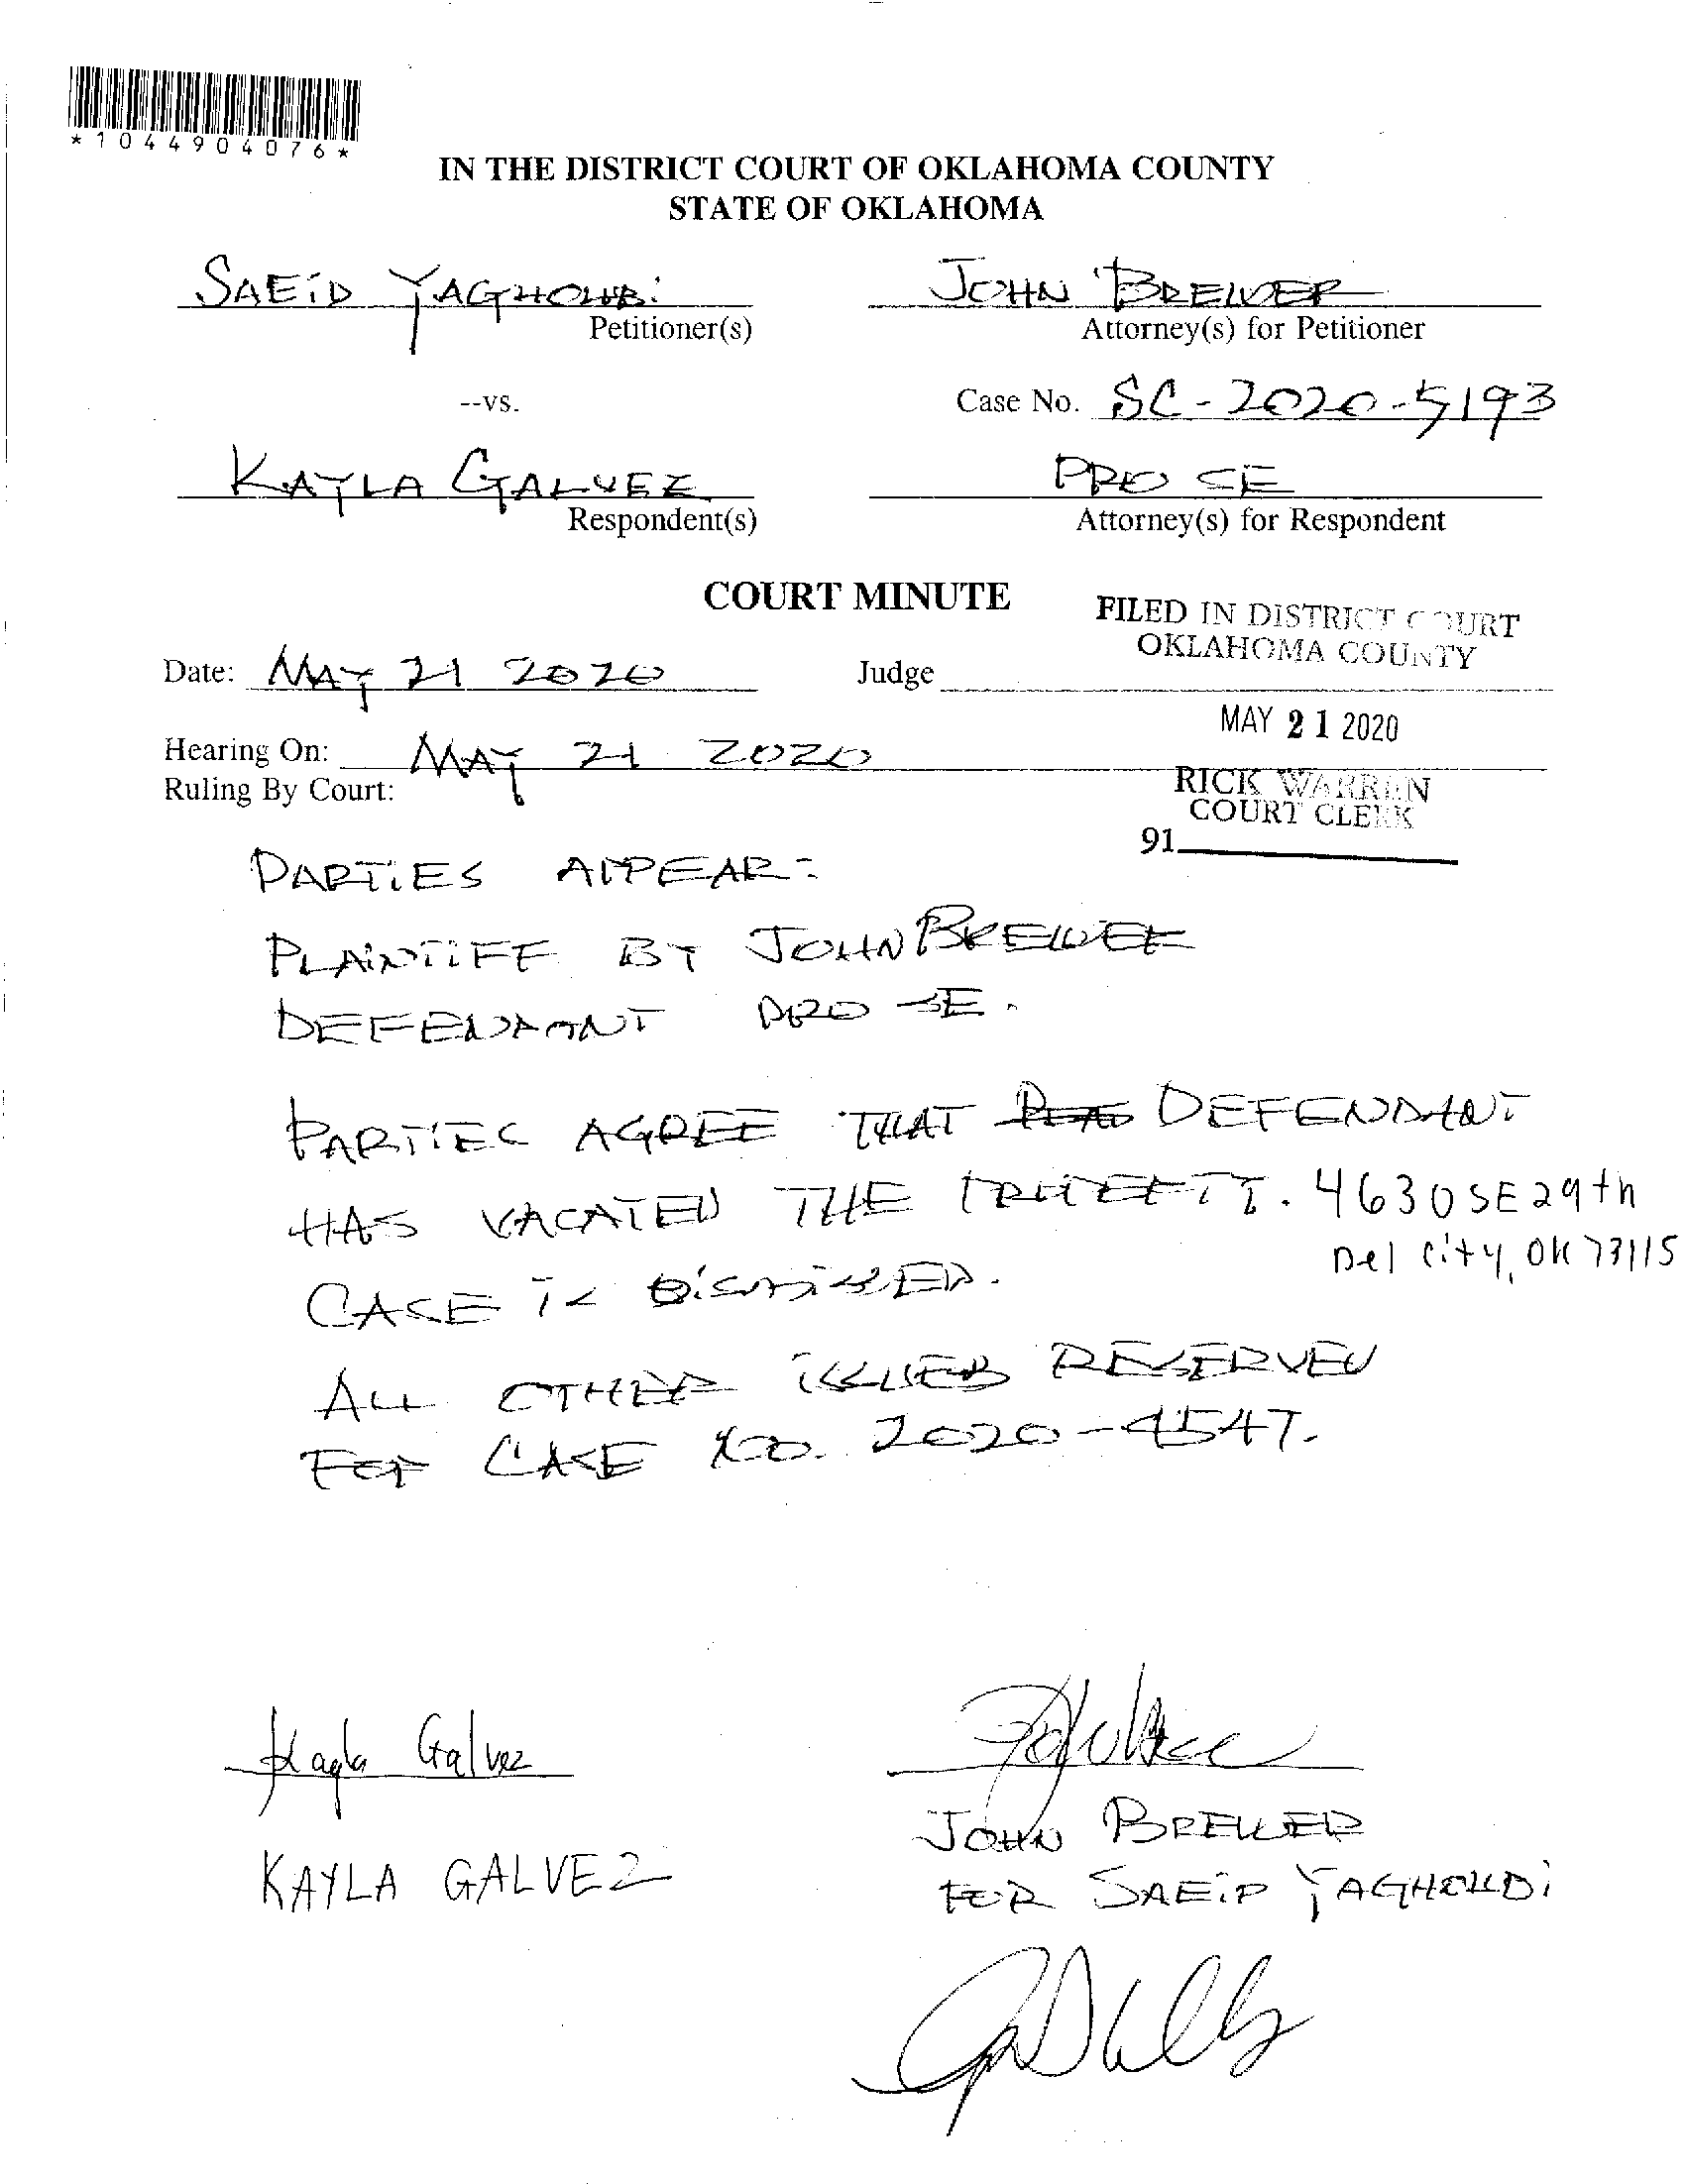 *1044904076*
IN THE DISTRICT COURT OF OKLAHOMA COUNTY
STATE OF OKLAHOMA
SAEID YAGHOUBI
Petitioner(s)
JOHN BREWER
Attorney(s) for Petitioner
--vs.
Case No. SC-2020-5193
KAYLA GALVEZ
Respondent(s)
PRO SE
Attorney(s) for Respondent
COURT MINUTE
FILED IN DISTRICT COURT
OKLAHOMA COUNTY
Date: MAY 21 2020
Judge
MAY 21 2020
Hearing On: MAY 21 2020
Ruling By Court:
RICK WARREN
COURT CLERK
91
PARTIES APPEAR:
PLAINTIFF BY JOHN BREWER
DEFENDANT PRO SE.
PARTIES AGREE THAT DEFENDANT
HAS VACATED THE PROPERTY. 4630 SE 29th
Del City, OK 73115
CASE IS DISMISSED.
ALL OTHER ISSUES RESERVED
FOR CASE NO. 2020-4547.
Kayla Galvez
KAYLA GALVEZ
JOHN BREWER
FOR SAEID YAGHOUBI